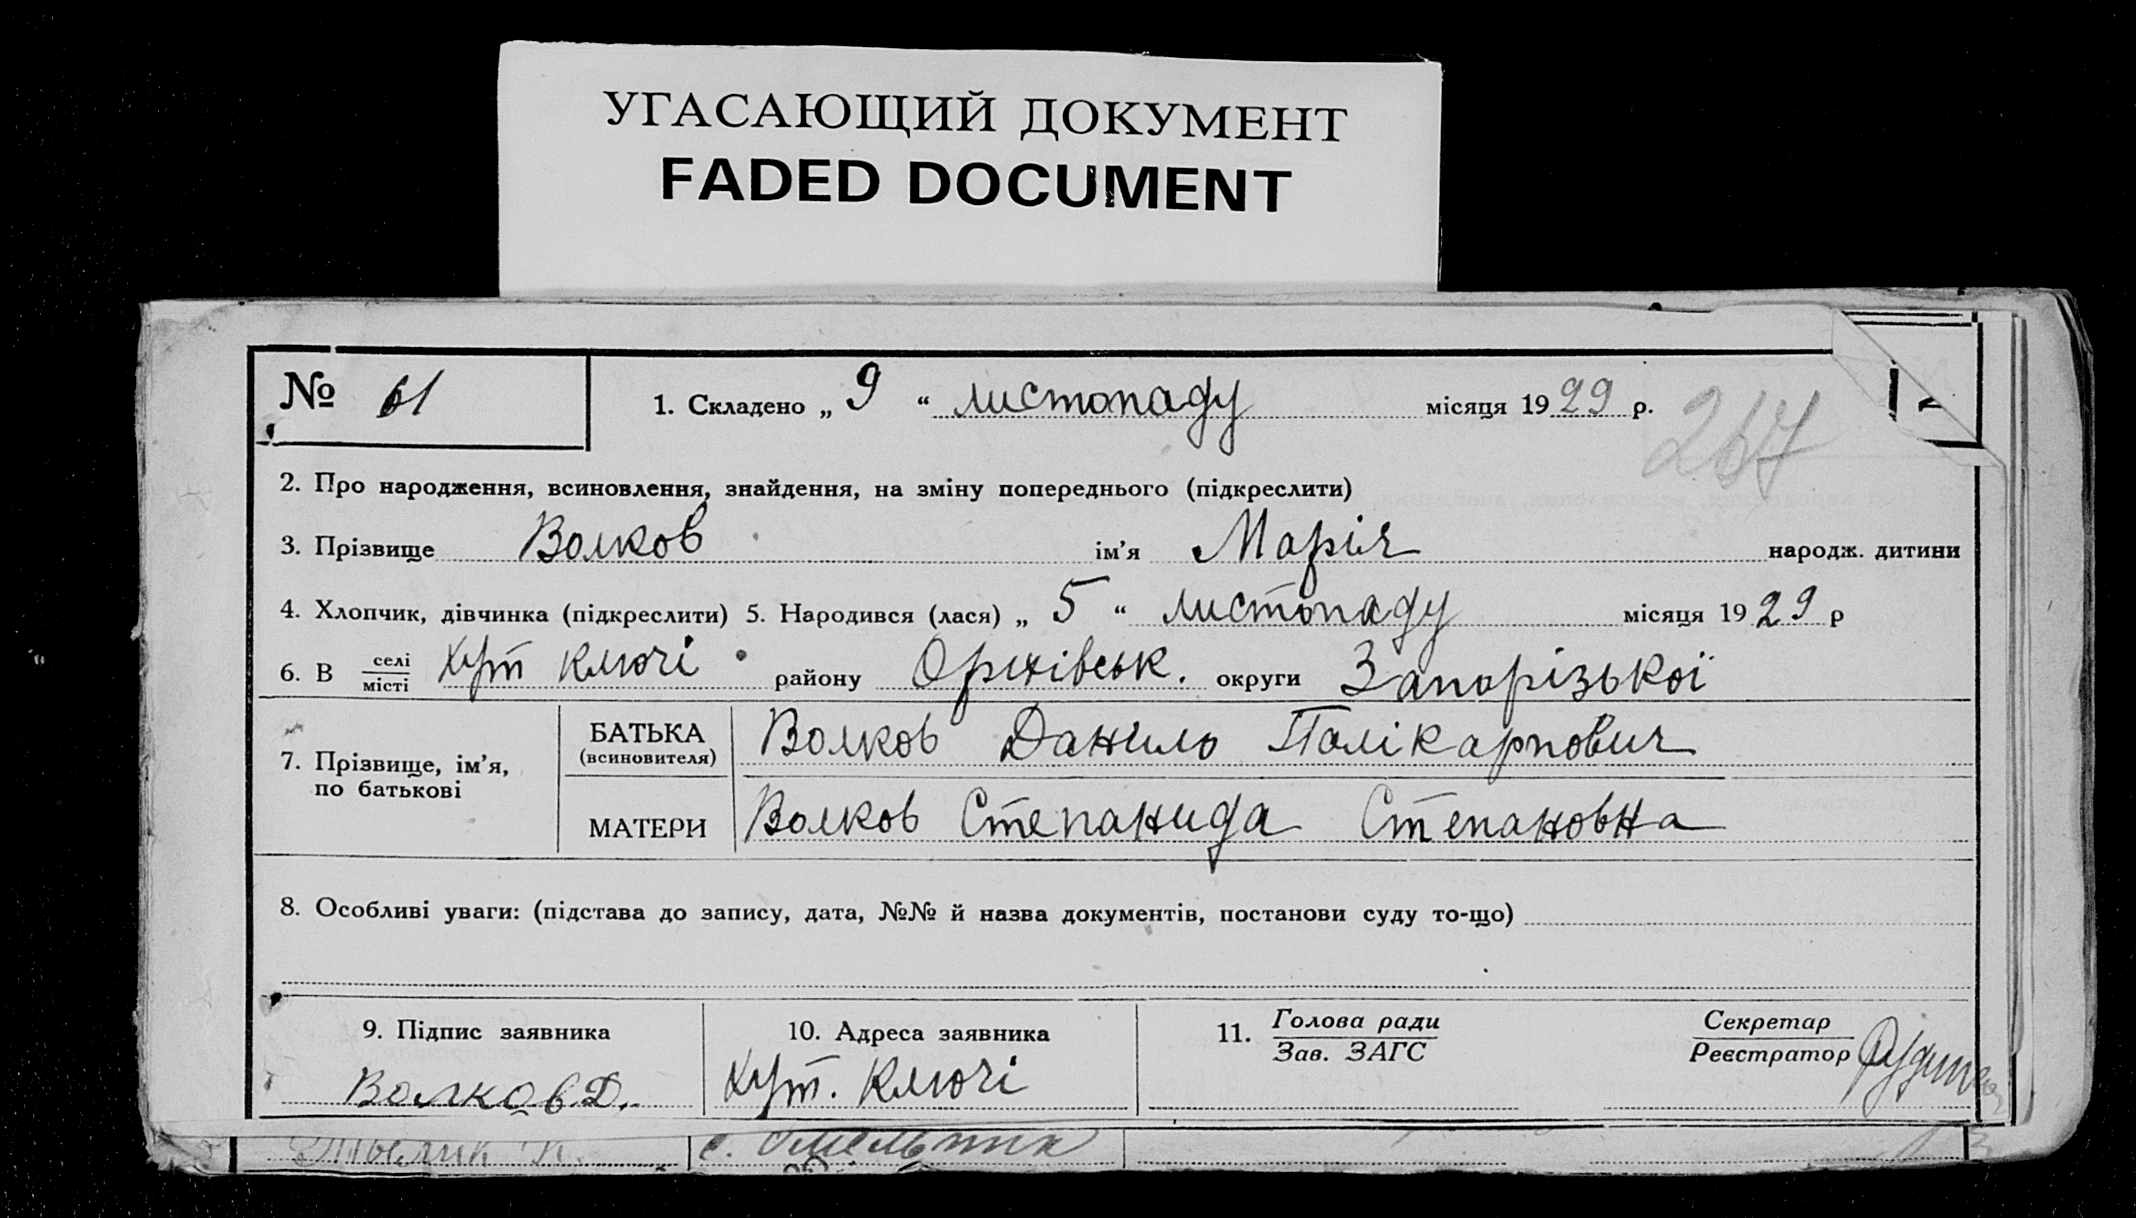 УГАСАЮЩИЙ ДОКУМЕНТ
FADED DOCUMENT
№ 61
1. Складено „ 9 “ листопаду місяця 1929 р.
267
2. Про народження, всиновлення, знайдення, на зміну попереднього (підкреслити)
3. Прізвище Волков ім’я Марія народж. дитини
4. Хлопчик, дівчинка (підкреслити) 5. Народився (лася) „ 5 “ листопаду місяця 1929 р
6. В селі місті хут Ключі району Оріхівськ. округи Запорізької
7. Прізвище, ім’я, по батькові
БАТЬКА (всиновителя) Волков Данило Полікарпович
МАТЕРИ Волков Степанида Степановна
8. Особливі уваги: (підстава до запису, дата, №№ й назва документів, постанови суду то-що)
9. Підпис заявника
Волков.Д.
10. Адреса заявника
хут. Ключі
11. Голова ради
Зав. ЗАГС
Секретар
Реєстратор